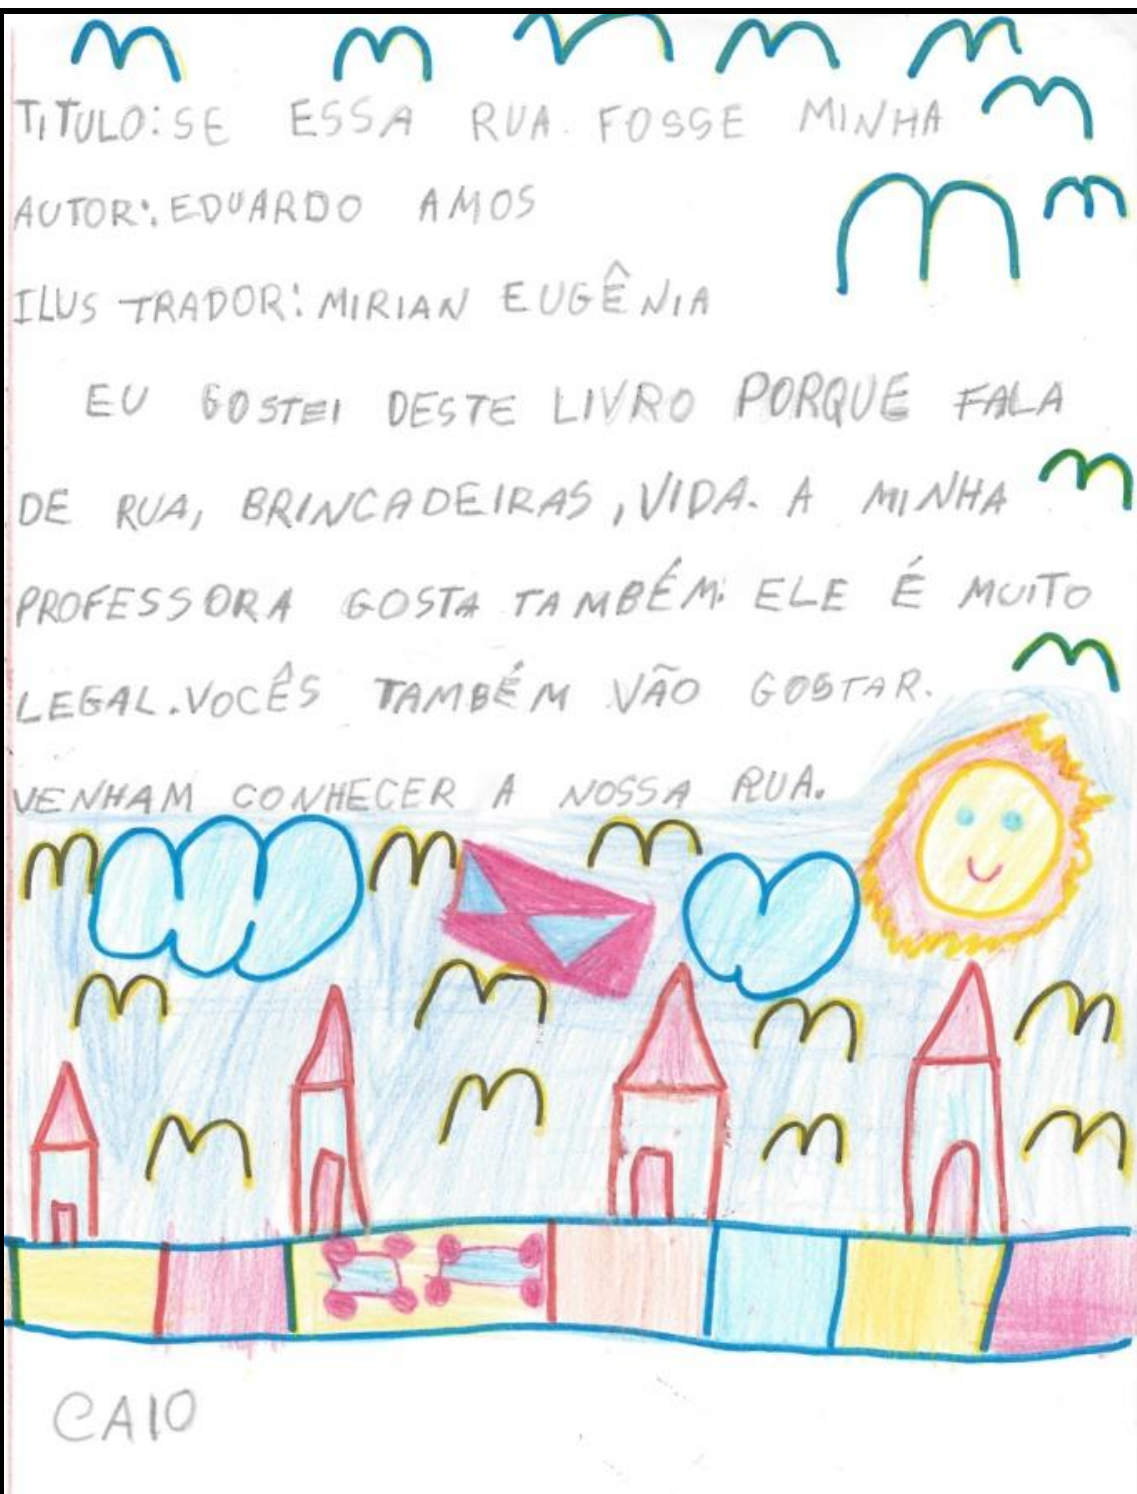 TITULO: SE ESSA RUA FOSSE MINHA
AUTOR: EDUARDO AMOS
ILUSTRADOR: MIRIAN EUGÊNIA
EU GOSTEI DESTE LIVRO PORQUE FALA
DE RUA, BRINCADEIRAS, VIDA. A MINHA
PROFESSORA GOSTA TAMBÉM. ELE É MUITO
LEGAL. VOCÊS TAMBÉM VÃO GOSTAR.
VENHAM CONHECER A NOSSA RUA.
CAIO